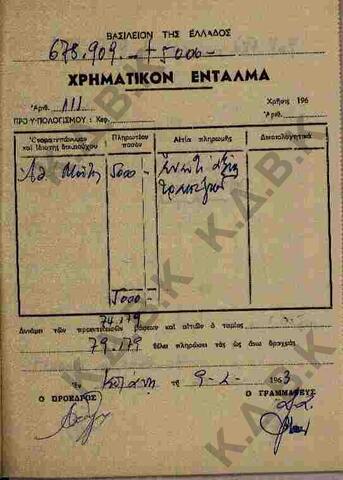 ΒΑΣΙΛΕΙΟΝ ΤΗΣ ΕΛΛΑΔΟΣ
678.909 - + 5000 -
ΧΡΗΜΑΤΙΚΟΝ ΕΝΤΑΛΜΑ
Ἀριθ. 111 Χρῆσις 196
ΠΡΟΫΠΟΛΟΓΙΣΜΟΥ : Κεφ. Ἀριθ.
Ὀνοματεπώνυμον καὶ ἰδιότης δικαιούχου
Πληρωτέον ποσόν
Αἰτία πληρωμῆς
Δικαιολογητικά
5000 - Ἔναντι
5000 -
74.179
Δυνάμει τῶν προεκτεθεισῶν πράξεων καὶ αἰτιῶν ὁ ταμίας
79.179 θέλει πληρώσει τὰς ὡς ἄνω δραχμὰς
Ἐν Κοζάνῃ τῇ 9-2- 1963
Ο ΠΡΟΕΔΡΟΣ Ο ΓΡΑΜΜΑΤΕΥΣ
Κ.Δ.Β.Κ